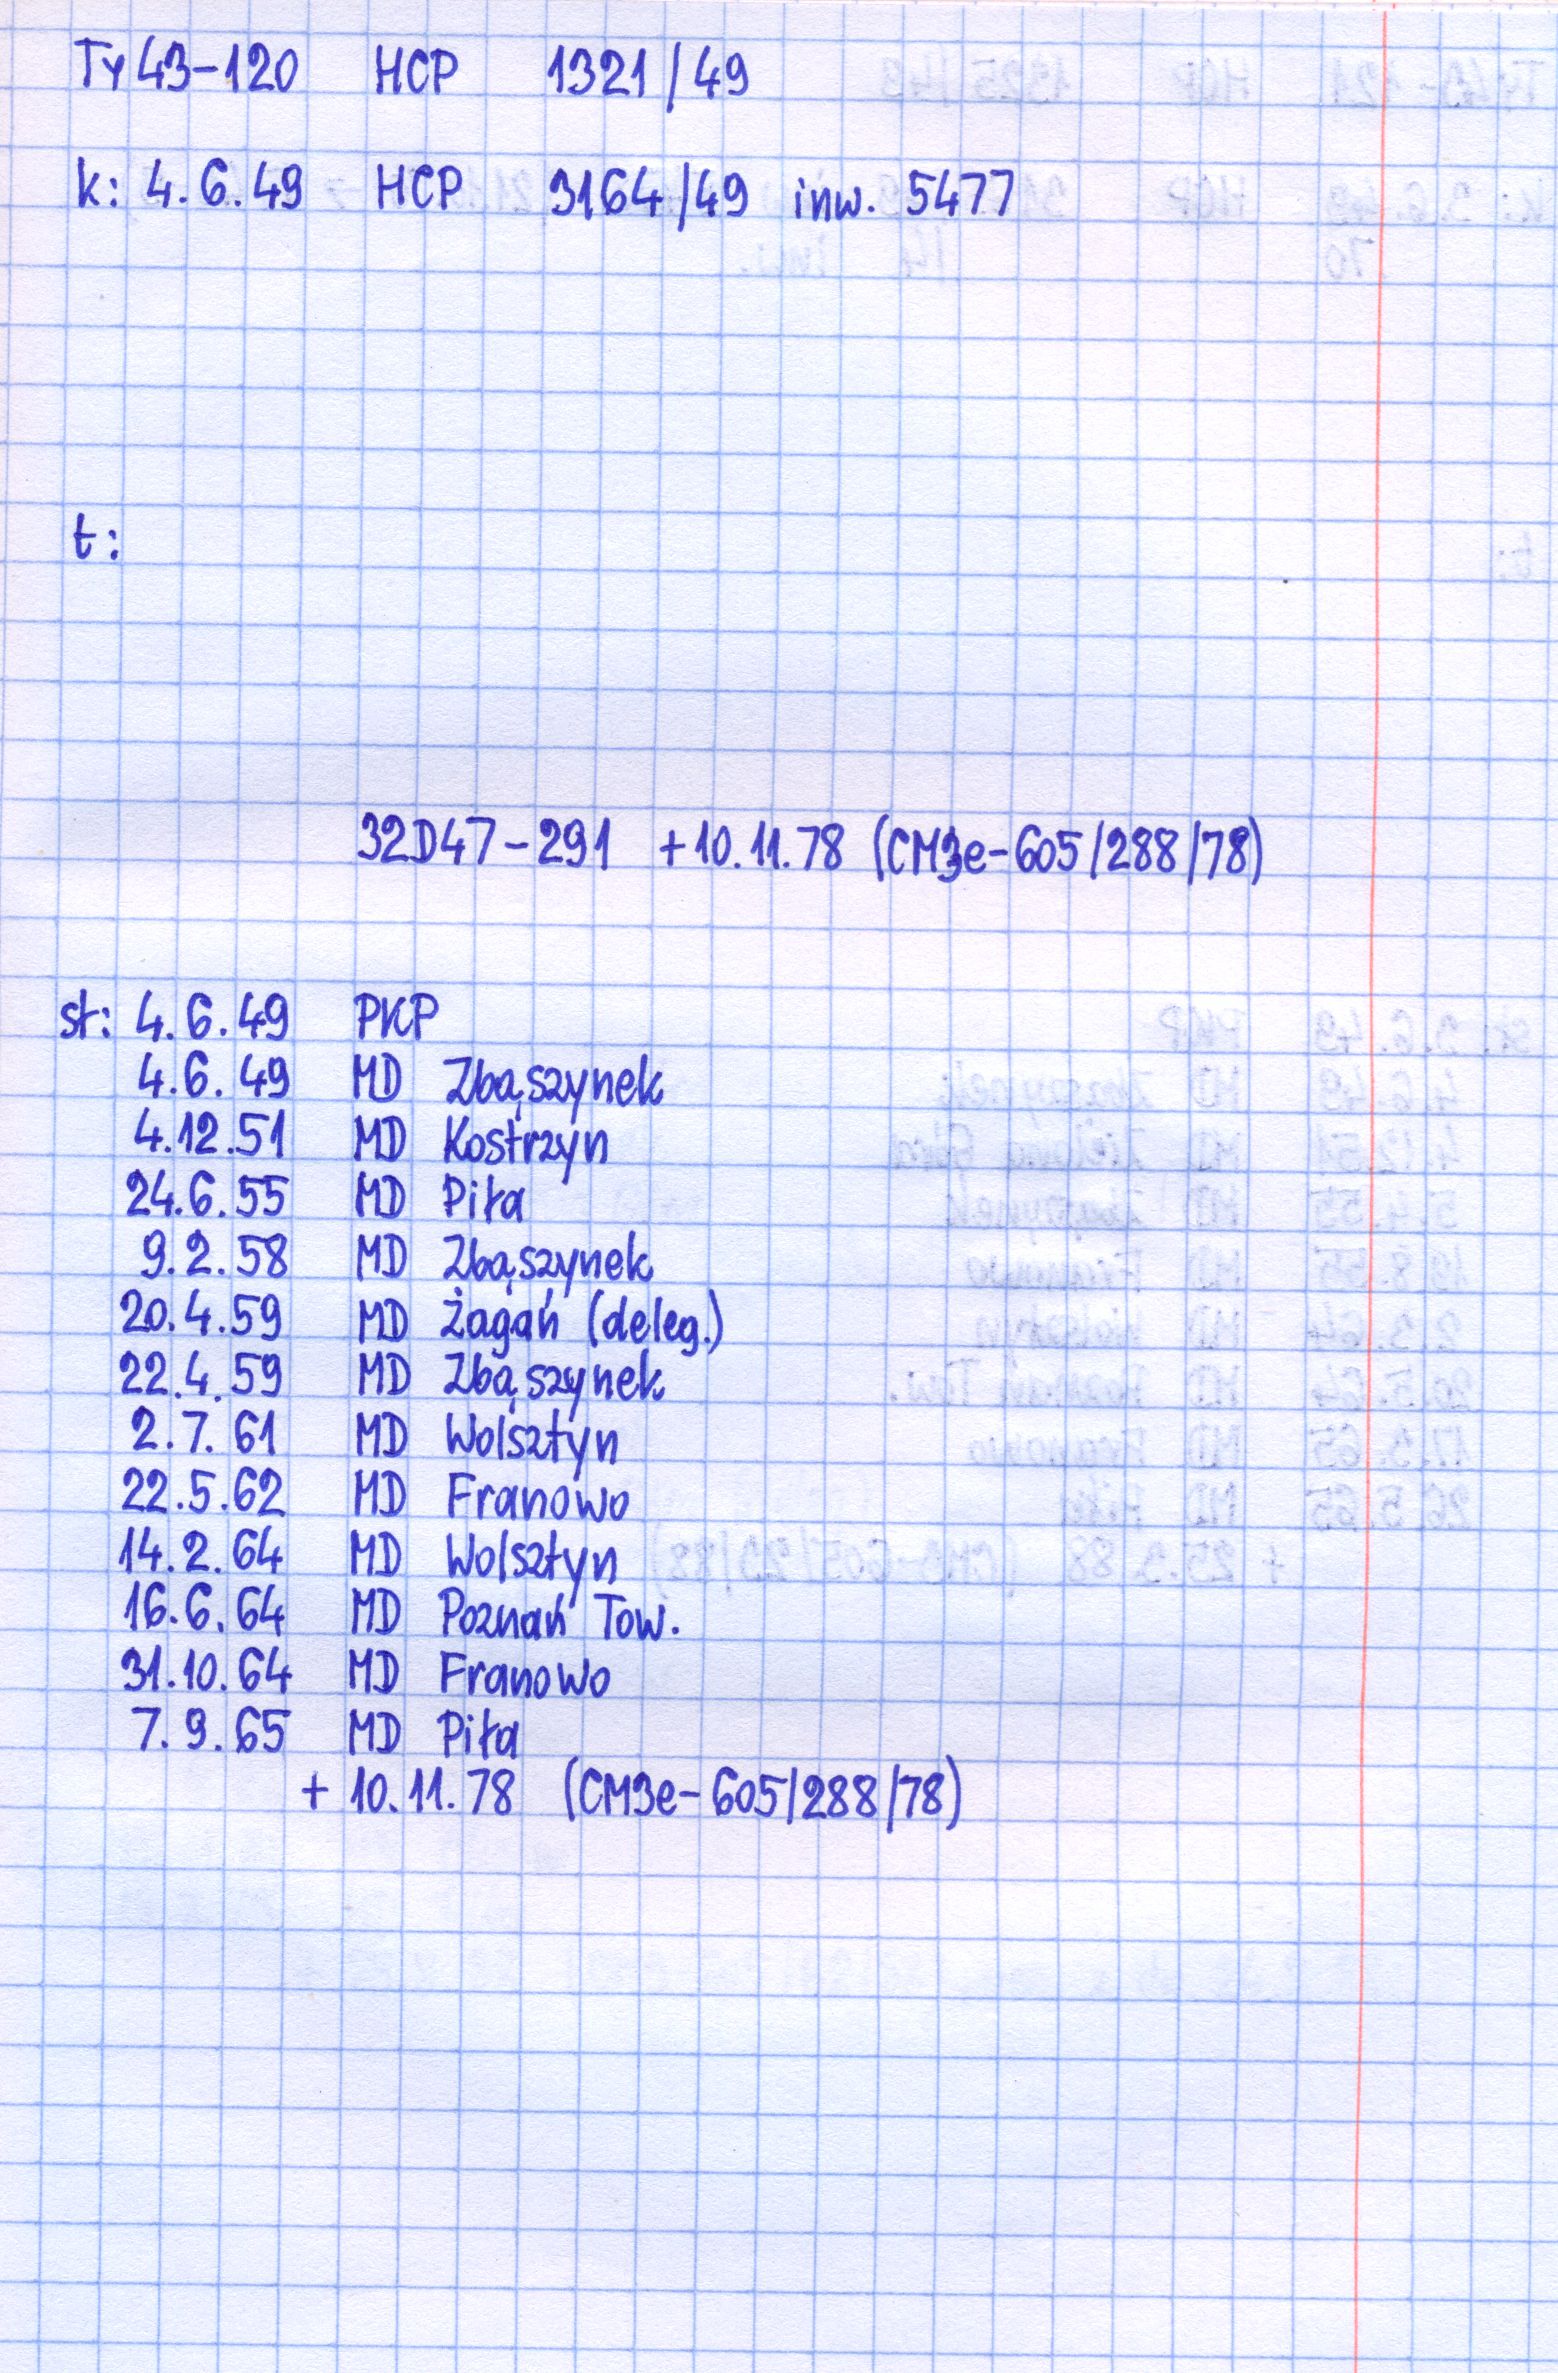 Ty43-120 HCP 1321/49
k: 4.6.49 HCP 3164/49 inw. 5477
t:
32D47-291 +10.11.78 (CM3e-605/288/78)
st: 4.6.49 PKP
4.6.49 MD Zbąszynek
4.12.51 MD Kostrzyn
24.6.55 MD Piła
9.2.58 MD Zbąszynek
20.4.59 MD Żagań (deleg.)
22.4.59 MD Zbąszynek
2.7.61 MD Wolsztyn
22.5.62 MD Franowo
14.2.64 MD Wolsztyn
16.6.64 MD Poznań Tow.
31.10.64 MD Franowo
7.9.65 MD Piła
+ 10.11.78 (CM3e-605/288/78)